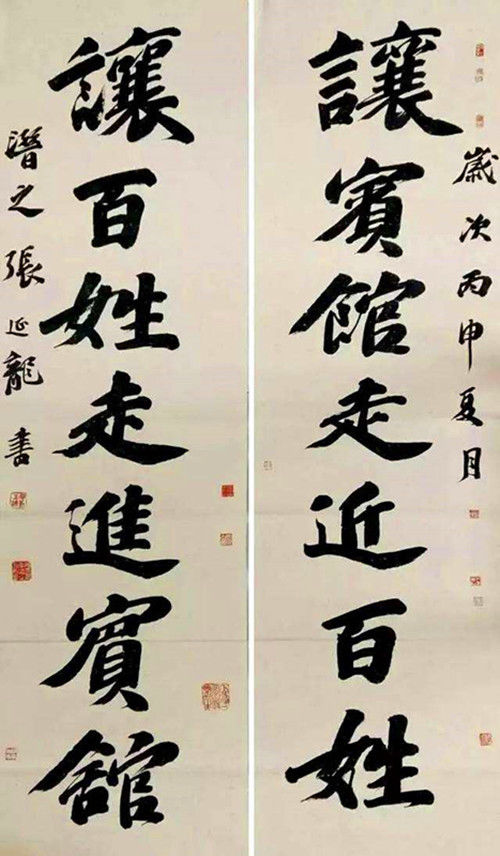 歲次丙申夏月
讓賓館走近百姓
讓百姓走進賓舘
潛之張延龍書